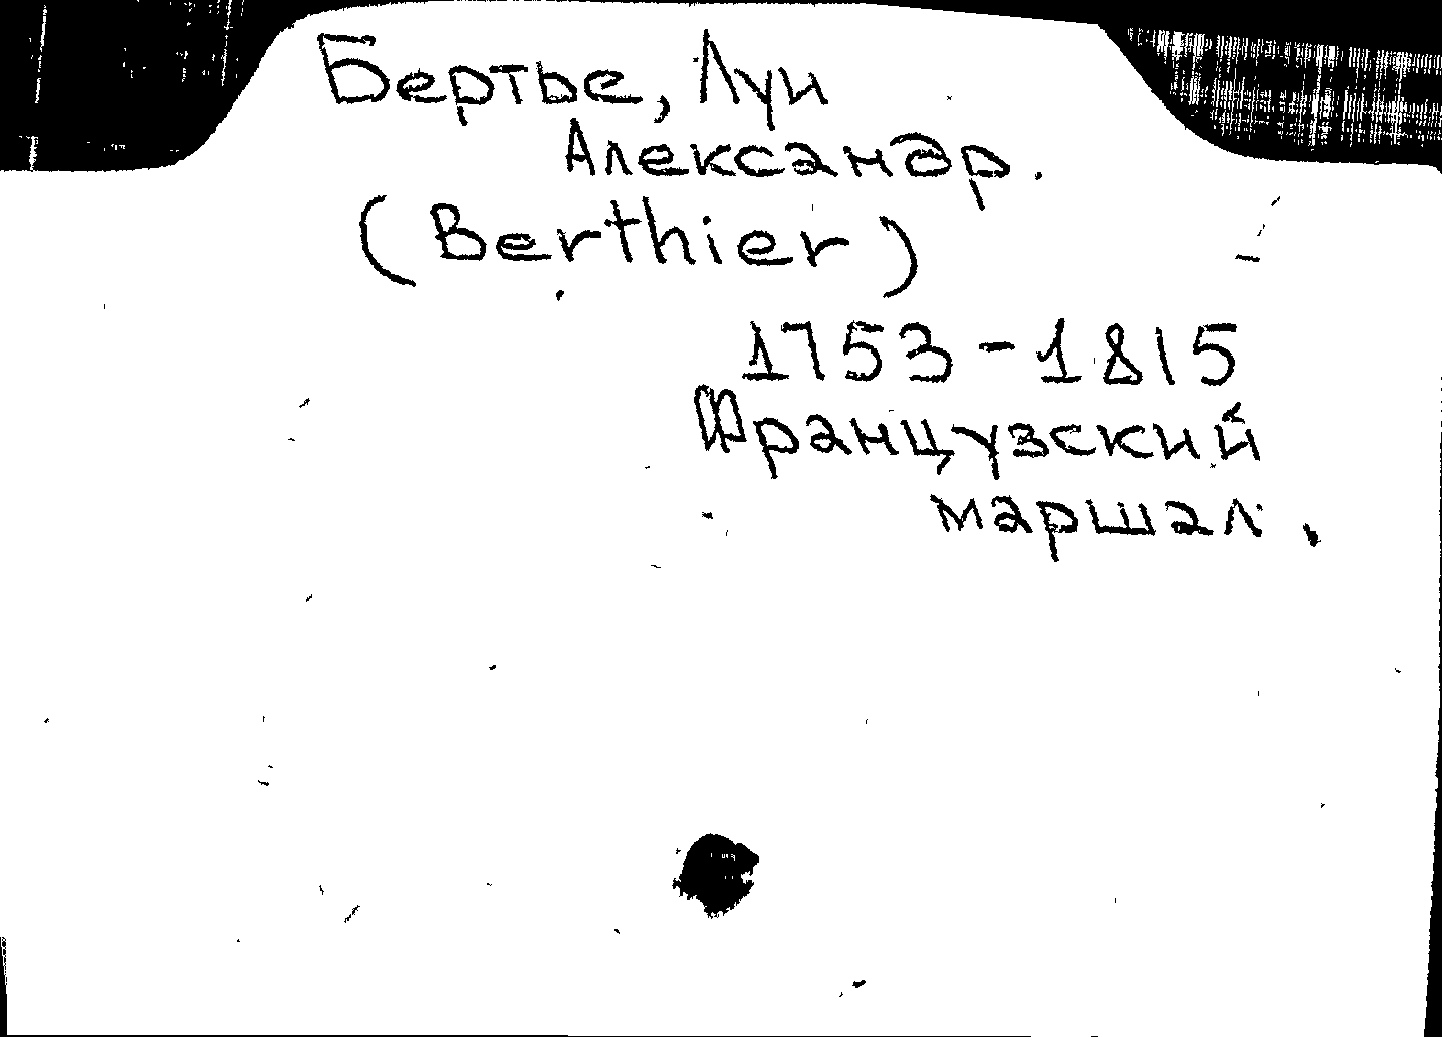 Бертье, Луи
Александр.
(Berthier)
1753-1815
Французский
маршал.